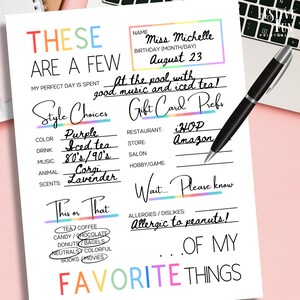 THESE
ARE A FEW
NAME
Miss Michelle
BIRTHDAY (MONTH/DAY)
August 23
MY PERFECT DAY IS SPENT At the pool with
good music and iced tea!
Style Choices
COLOR: Purple
DRINK: Iced tea
MUSIC: 80's/90's
ANIMAL: Corgi
SCENTS: Lavender
Gift Card Prefs
RESTAURANT: IHOP
STORE: Amazon
SALON:
HOBBY/GAME:
This or That
TEA / COFFEE
CANDY / CHOCOLATE
DONUTS / BAGELS
NEUTRALS / COLORFUL
BOOKS / MOVIES
Wait... Please know
ALLERGIES / DISLIKES
Allergic to peanuts!
...OF MY
FAVORITE THINGS